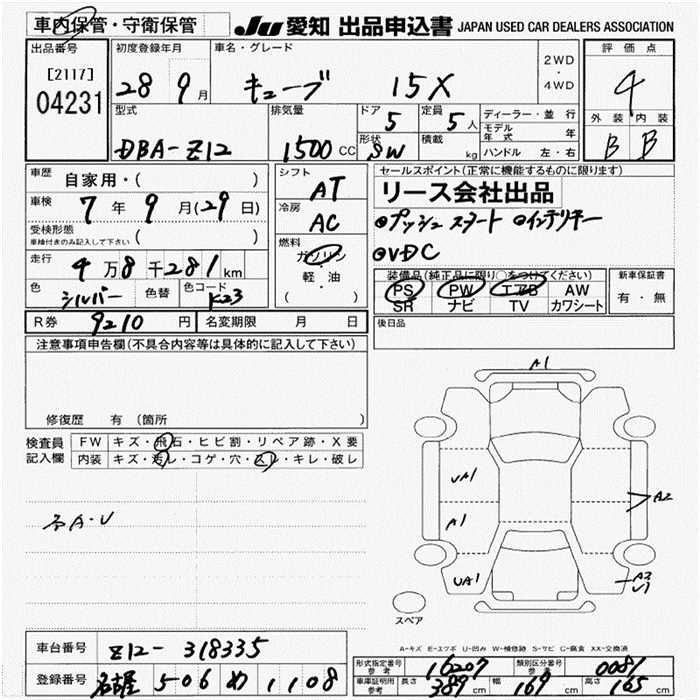 車内保管・守衛保管
JU 愛知 出品申込書 JAPAN USED CAR DEALERS ASSOCIATION
出品番号
[2117]
04231
初度登録年月
28 9月
車名・グレード
キューブ 15X
2WD
・
4WD
評価点
4
外装 内装
B B
型式
DBA-Z12
排気量
1500 CC
ドア 5
形状 SW
定員 5人
積載 kg
ディーラー・並行
モデル年式 年
ハンドル 左・右
車歴
自家用・( )
車検 7年 9月(29日)
受検形態
車検付きのみ記入して下さい ( )
走行 4万8千281km
色 シルバー 色替 色コード K23
シフト
AT
冷房
AC
燃料
ガソリン
軽・油
( )
セールスポイント(正常に機能するものに限ります)
リース会社出品
●プッシュスタート ●インテリキー
●VDC
装備品(純正品に限り○をつけてください)
PS PW エアB AW
SR ナビ TV カワシート
新車保証書
有・無
R券 9210円 名変期限 月 日
後日品
注意事項申告欄(不具合内容等は具体的に記入して下さい)
修復歴 有(箇所 )
検査員
記入欄
FW キズ・飛石・ヒビ割・リペア跡・X要
内装 キズ・汚レ・コゲ・穴・スレ・キレ・破レ
A・U
A1
UA1
A1
UA1
A2
A2
U1
スペア
A-キズ E-エクボ U-凹み W-補修跡 S-サビ C-腐食 XX-交換済
車台番号 Z12-318335
登録番号 名古屋 506 め 1108
形式指定番号 参考 16207 類別区分番号 参考 0081
車庫証明用 参考 長さ 389cm 幅 169cm 高さ 165cm